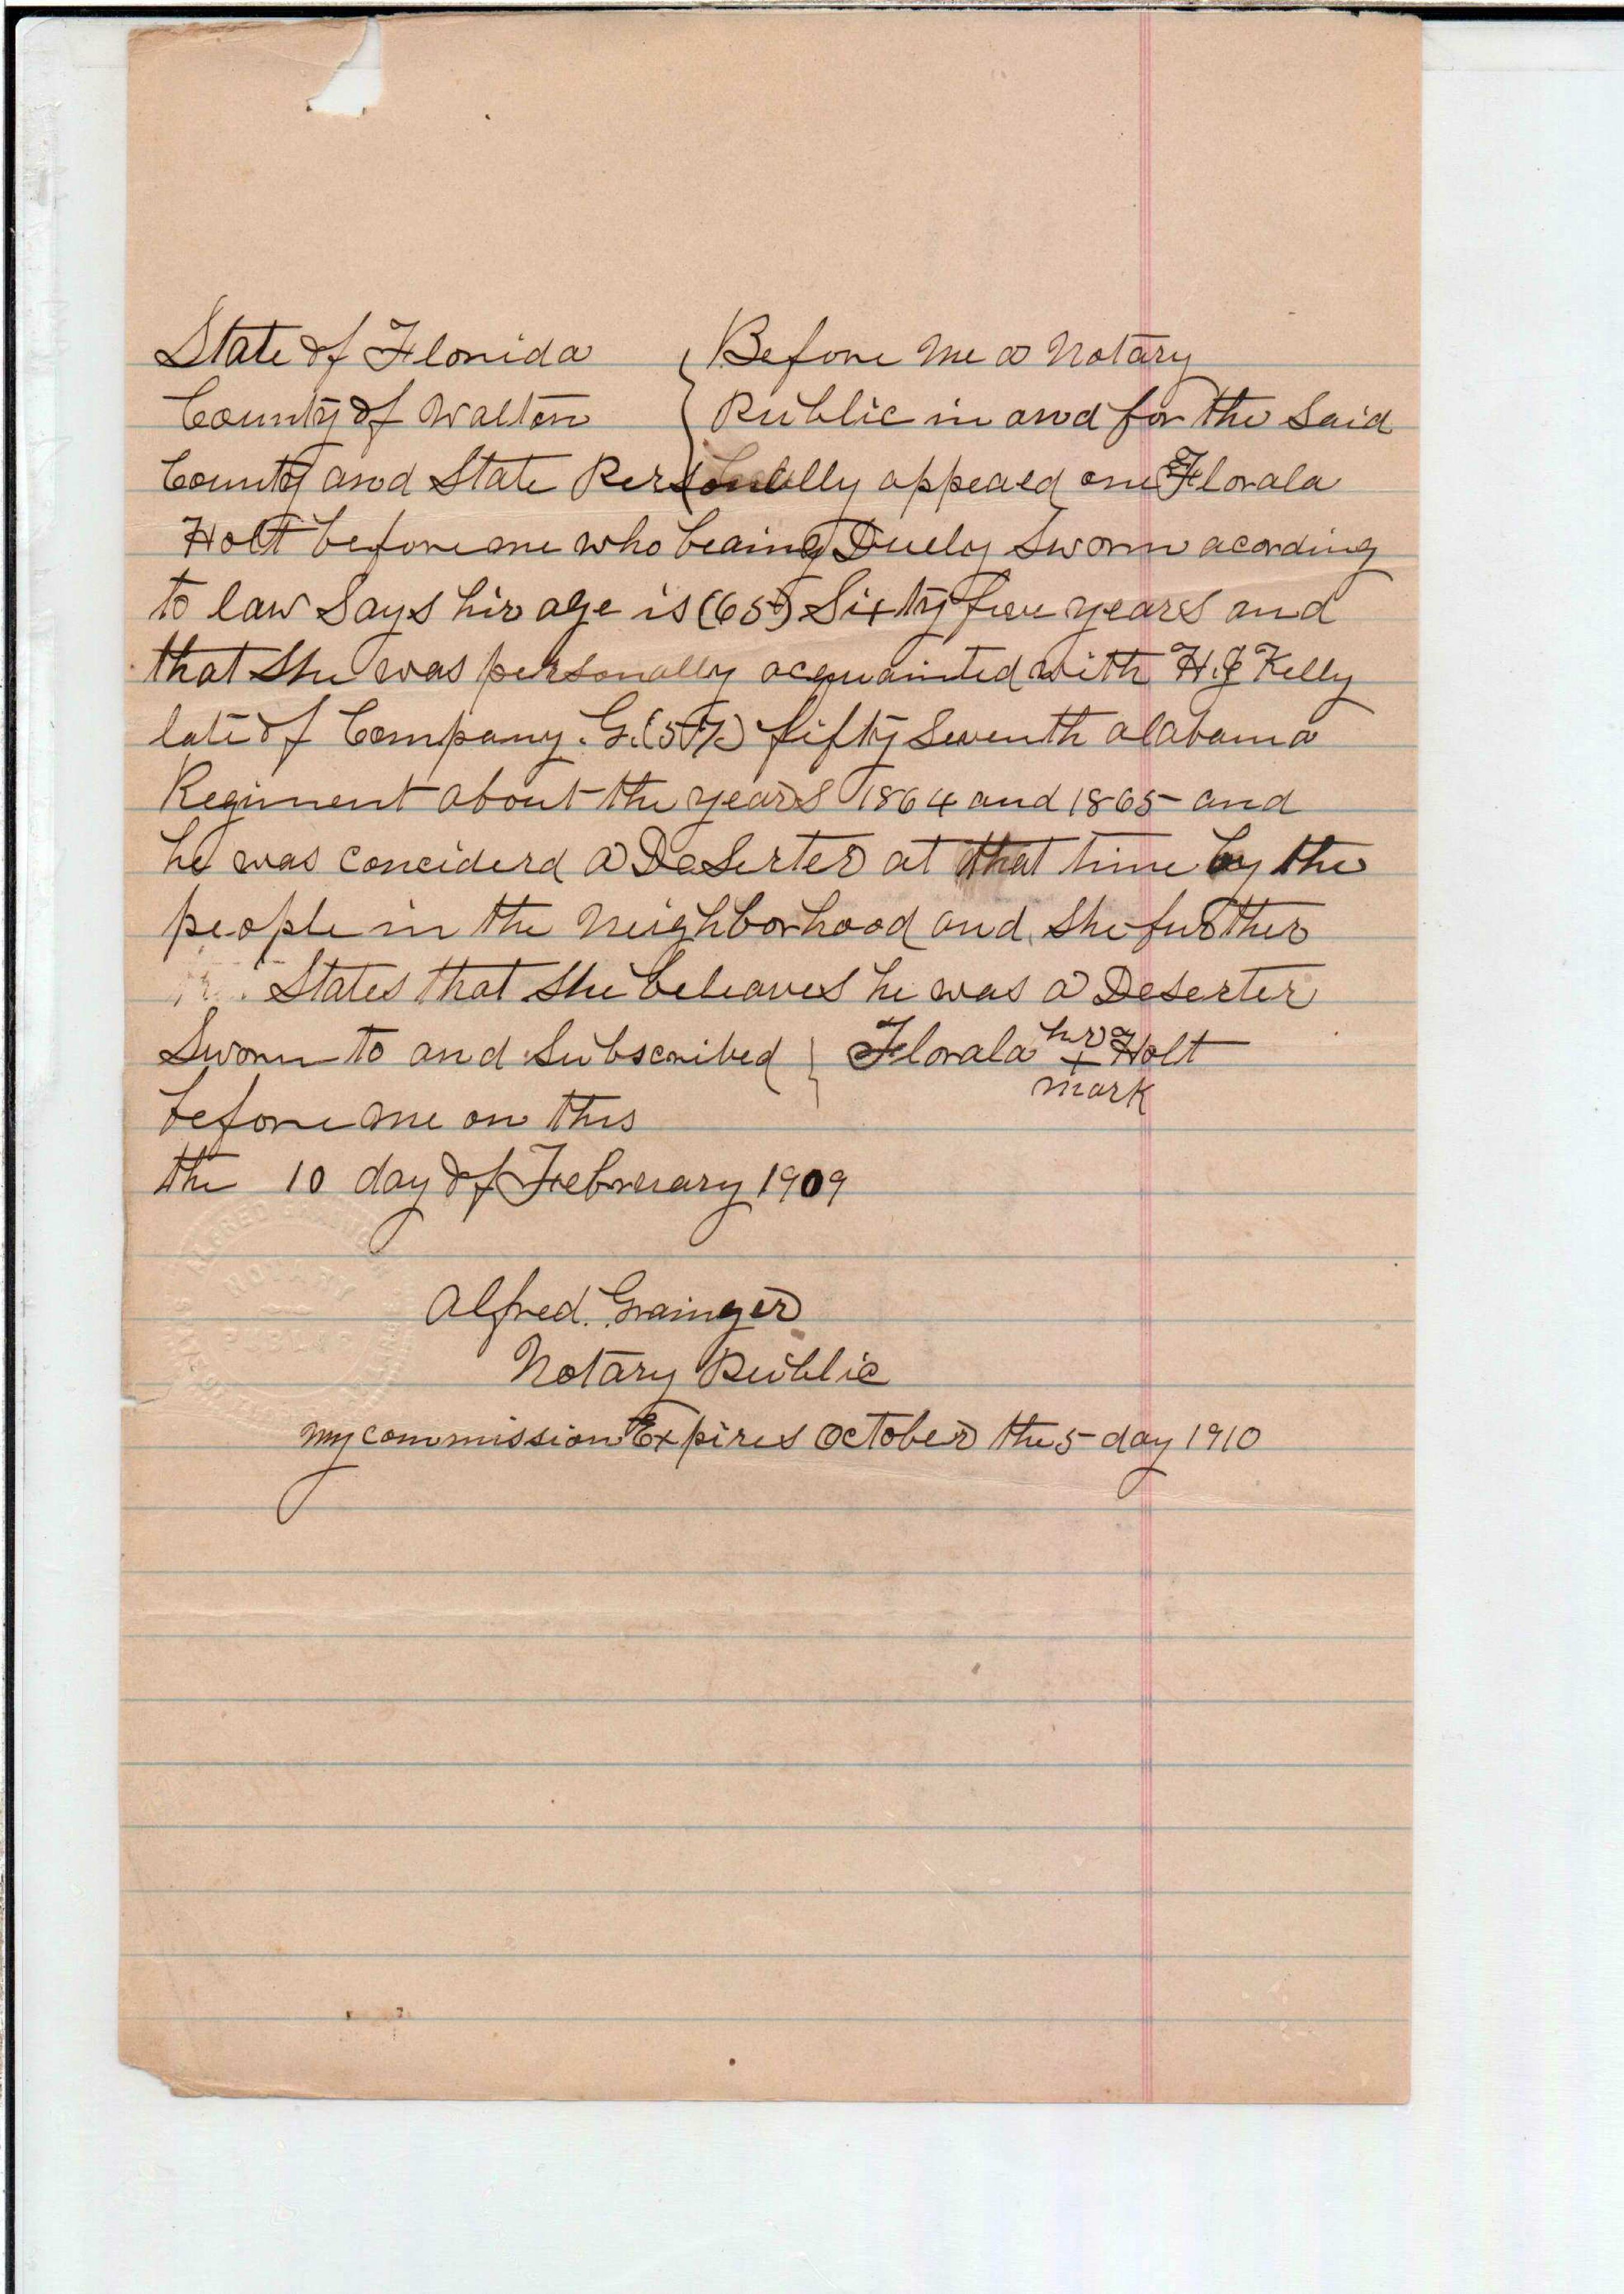 State of Florida { Before me a Notary
County of Walton { Public in and for the Said
County and State Personally appeaed one Florala
Holt before me who beaing Duely Sworn acording
to law Says hir age is (65) Sixty five years and
that She was personally acquainted with H.J Kelly
late of Company. G. (57) fifty Seventh alabama
Regiment about the years 1864 and 1865 and
he was conciderd a Deserter at that time by the
people in the Neighborhood and she further
States that She beleaves he was a Deserter
Sworn to and Subscribed } Florala hir + Holt
mark
before me on this
the 10 day of February 1909
Alfred. Grainger
Notary Public
my commission Expires October the 5 day 1910
ALFRED
NOTARY
PUBLIC